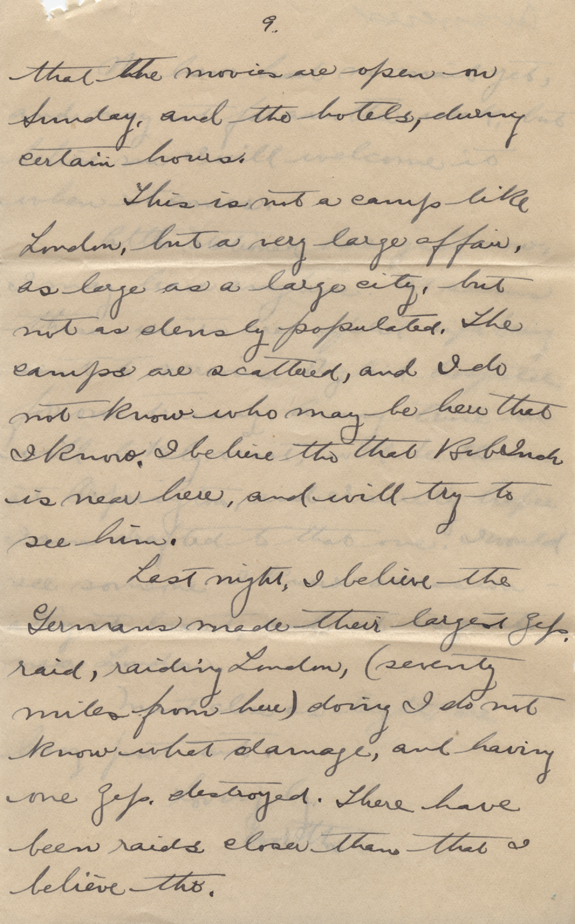 9.
that the movies are open on
Sunday, and the hotels, during
certain hours.
This is not a camp like
London, but a very large affair,
as large as a large city, but
not as densly populated. The
camps are scattered, and I do
not know who may be here that
I know. I believe tho that Bob Inch
is near here, and will try to
see him.
Last night, I believe the
Germans made their largest Zep.
raid, raiding London, (seventy
miles from here) doing I do not
know what damage, and having
one Zep. destroyed. There have
been raids closer than that I
believe tho.